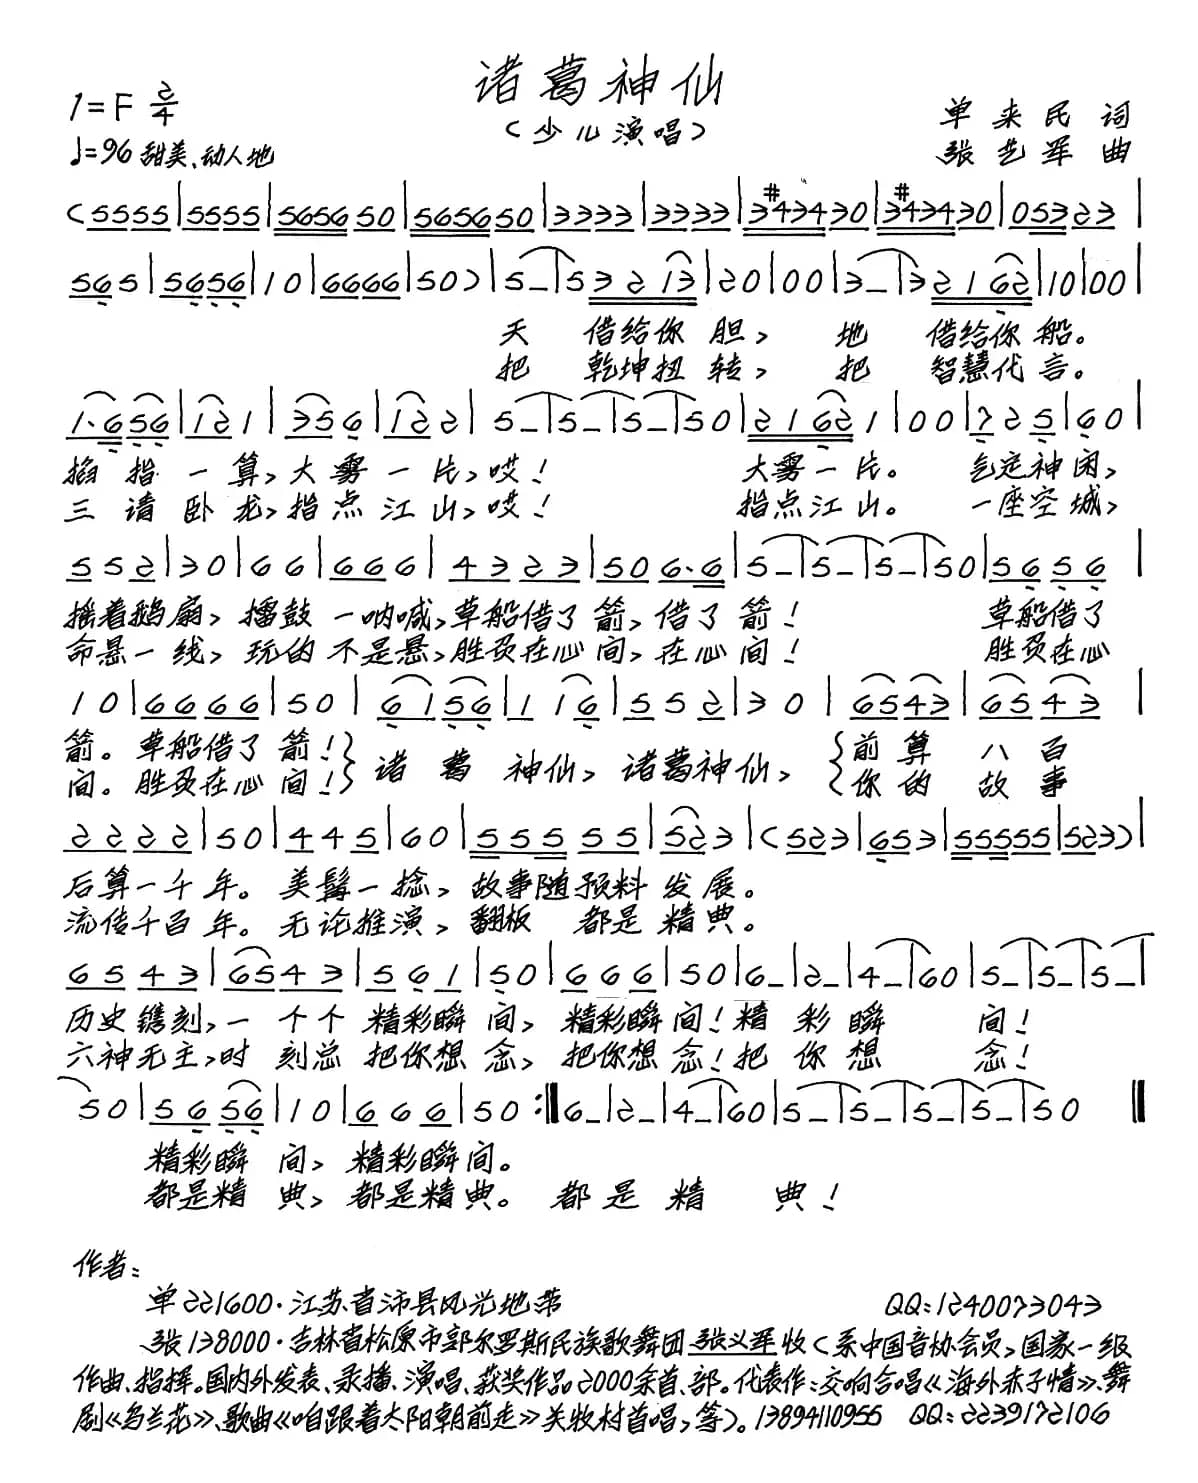 诸葛神仙
1=F 2/4
(少儿演唱)
单来民 词
♩=96 甜美、动人地
张艺军 曲
(5555|5555|565650|565650|3333|3333|3#43430|3#43430|05323|
565|5656|10|6666|50)|5-|53213|20|00|3-|32162|10|00|
天 借给你胆, 地 借给你船。
把 乾坤扭转, 把 智慧代言。
1·656|121|356|122|5-|5-|5-|50|21621|00|725|60|
掐指一算,大雾一片,哎! 大雾一片。 乞定神闲,
三请卧龙,指点江山,哎! 指点江山。 一座空城,
552|30|66|666|4323|506·6|5-|5-|5-|50|5656|
摇着鹅扇, 擂鼓一呐喊,草船借了箭,借了箭! 草船借了
命悬一线, 玩的不是悬,胜负在心间,在心间! 胜负在心
10|6666|50|6156|116|552|30|6543|6543|
箭。草船借了箭! 诸葛神仙, 诸葛神仙, 前算八百
间。胜负在心间! 你的故事
2222|50|445|60|55555|523|(523|653|55555|523)|
后算一千年。美髯一捻, 故事随预料发展。
流传千百年。无论推演, 翻板 都是精典。
6543|6543|561|50|666|50|6-|2-|4-|60|5-|5-|5-|
历史镌刻,一个个精彩瞬间, 精彩瞬间!精彩瞬间!
六神无主,时刻总把你想念,把你想念!把你想念!
50|5656|10|666|50:‖6-|2-|4-|60|5-|5-|5-|5-|50‖
精彩瞬间, 精彩瞬间。
都是精典, 都是精典。 都是精典!
作者:
单221600·江苏省沛县风光地带 QQ:1240073043
张138000·吉林省松原市郭尔罗斯民族歌舞团张义军收(系中国音协会员,国家一级
作曲、指挥。国内外发表、录播、演唱、获奖作品2000余首、部。代表作:交响合唱《海外赤子情》、舞
剧《乌兰花》、歌曲《咱跟着太阳朝前走》关牧村首唱,等)。13894110955 QQ:2239172106